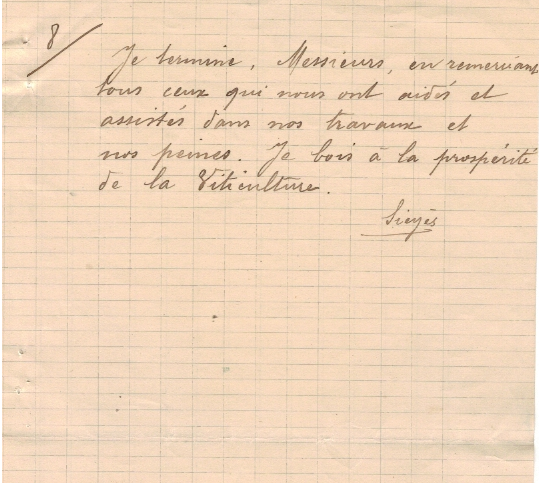 8/
Je termine, Messieurs, en remerciant
tous ceux qui nous ont aidés et
assistés dans nos travaux et
nos peines. Je bois à la prospérité
de la Viticulture.
Sieyès